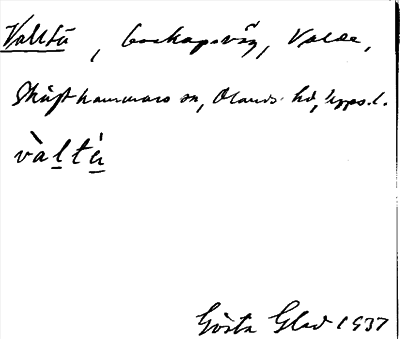 Valltå, boskapsväg, Valla,
Skäfthammars sn, Olands hd, Upps. l.
vàltá
Gösta Glad 1937